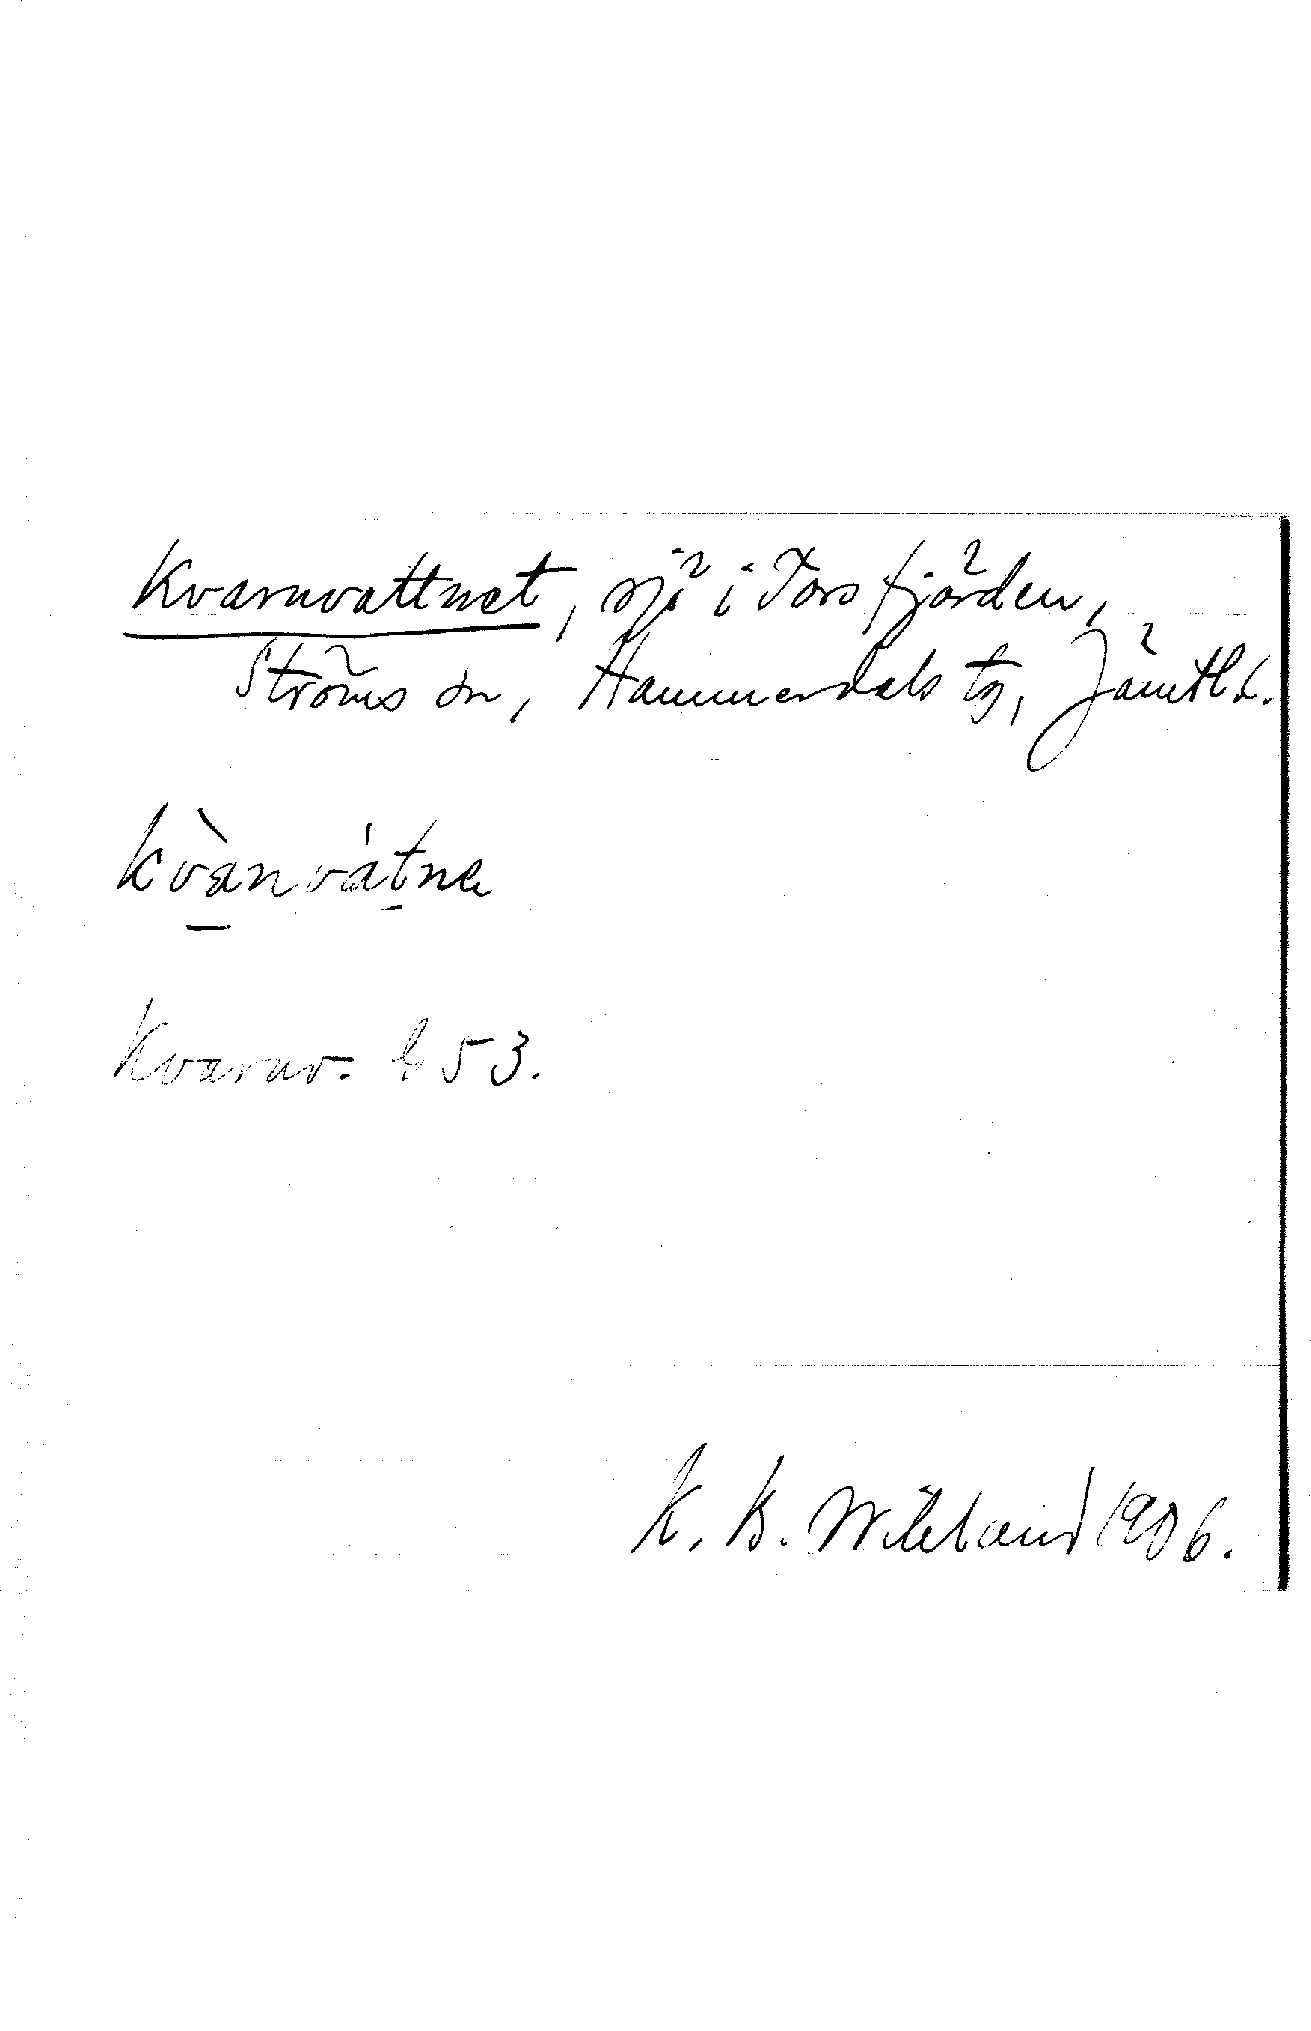 Kvarnvattnet, sjö i Torsfjärden,
Ströms sn, Hammerdals tg, Jämtl. l.
kvànvátnɐ
Kvarnv. G 53.
K. B. Wiklund 1906.